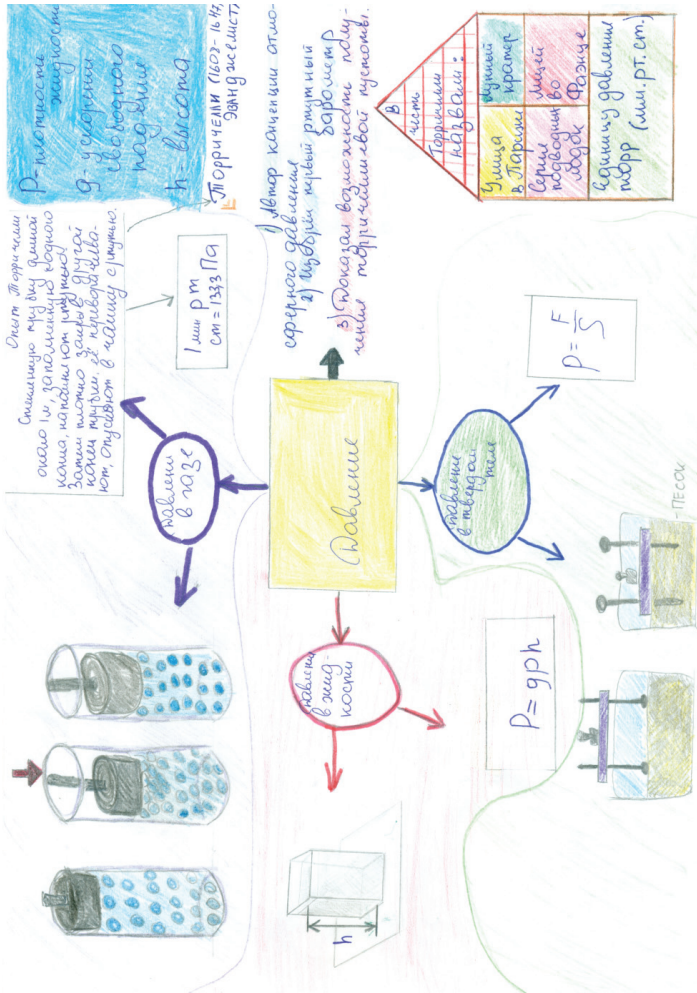 Давление
Давлени
в газе
Опыт Торричелли
Стеклянную трубку длиной
около 1 м, запаянную с одного
конца, наполняют ртутью.
Затем плотно закрыв другой
конец трубки, её переворачива-
ют, опускают в чашку с ртутью.
1 мм рт
ст = 133,3 Па
P-плотность
жидкости
g-ускорении
свободного
падение
h = высота
Торричелли (1608-1647,
Эванджелист)
1) Автор концепции атмо-
сферного давление
2) Изобрёл первый ртутный
барометр
3) Доказал возможность полу-
чения торричеллиевой пустоты.
В
честь
Торричелли
назвали:
Улица
в Париже
лунный
кратер
Серия
подводных
лодок
во
единицу давление
торр (мм.рт.ст.)
Давление
в твердом
теле
P = F/S
-ПЕСОК
Давлени
в жид-
кости
P = gph
h